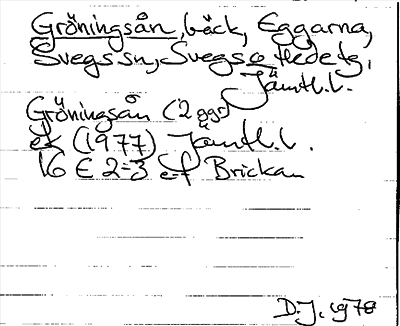 Gröningsån, bäck, Eggarna,
Svegs sn, Svegs o Hede tg,
Jämtl.l.
Gröningsån (2 ggr)
ek (1977) Jämtl.l.
16 E 2-3 ef Brickan
D.J. 1978